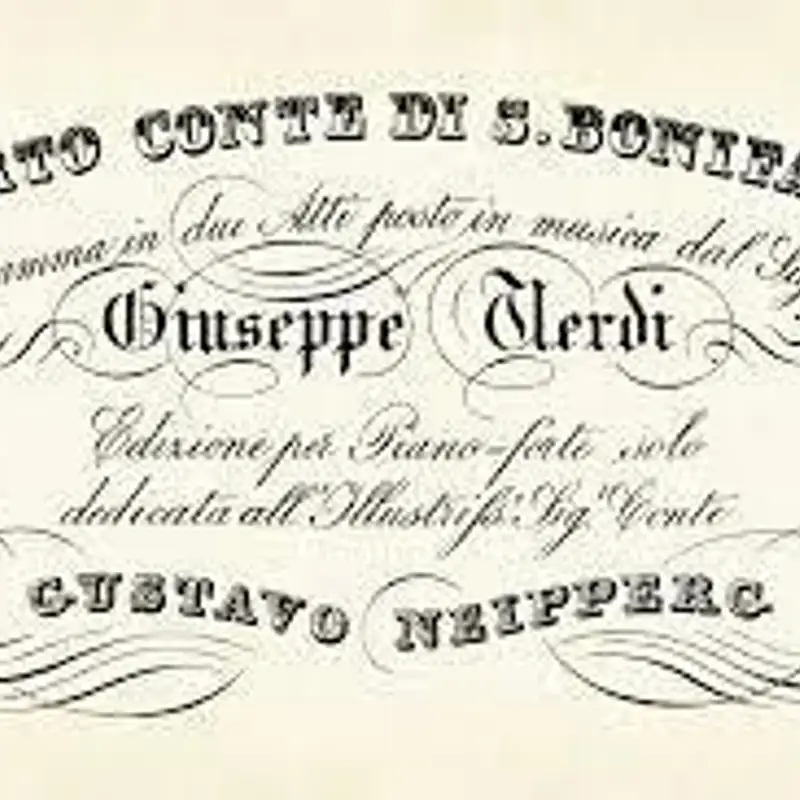 RTO CONTE DI S. BONIFA
amma in due Atti posto in musica dal Sig
Giuseppe Verdi
Edizione per Piano-forte solo
dedicata all' Illustriss.º Sig.r Conte
GUSTAVO NEIPPERG